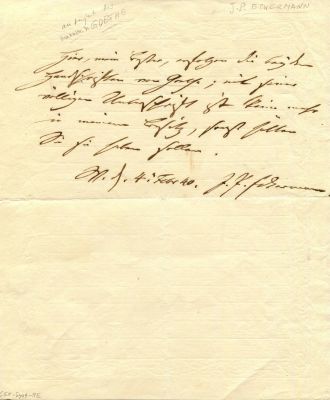 GOETHE
J.P. ECKERMANN
Hier, mein Bester, erfolgen die beiden
Handschriften von Goethe; mit seiner
völligen Unterschrift ist keine mehr
in meinem Besitz, sonst sollten
Sie sie haben
W. d. 4. Febr 40. J. P. Eckermann